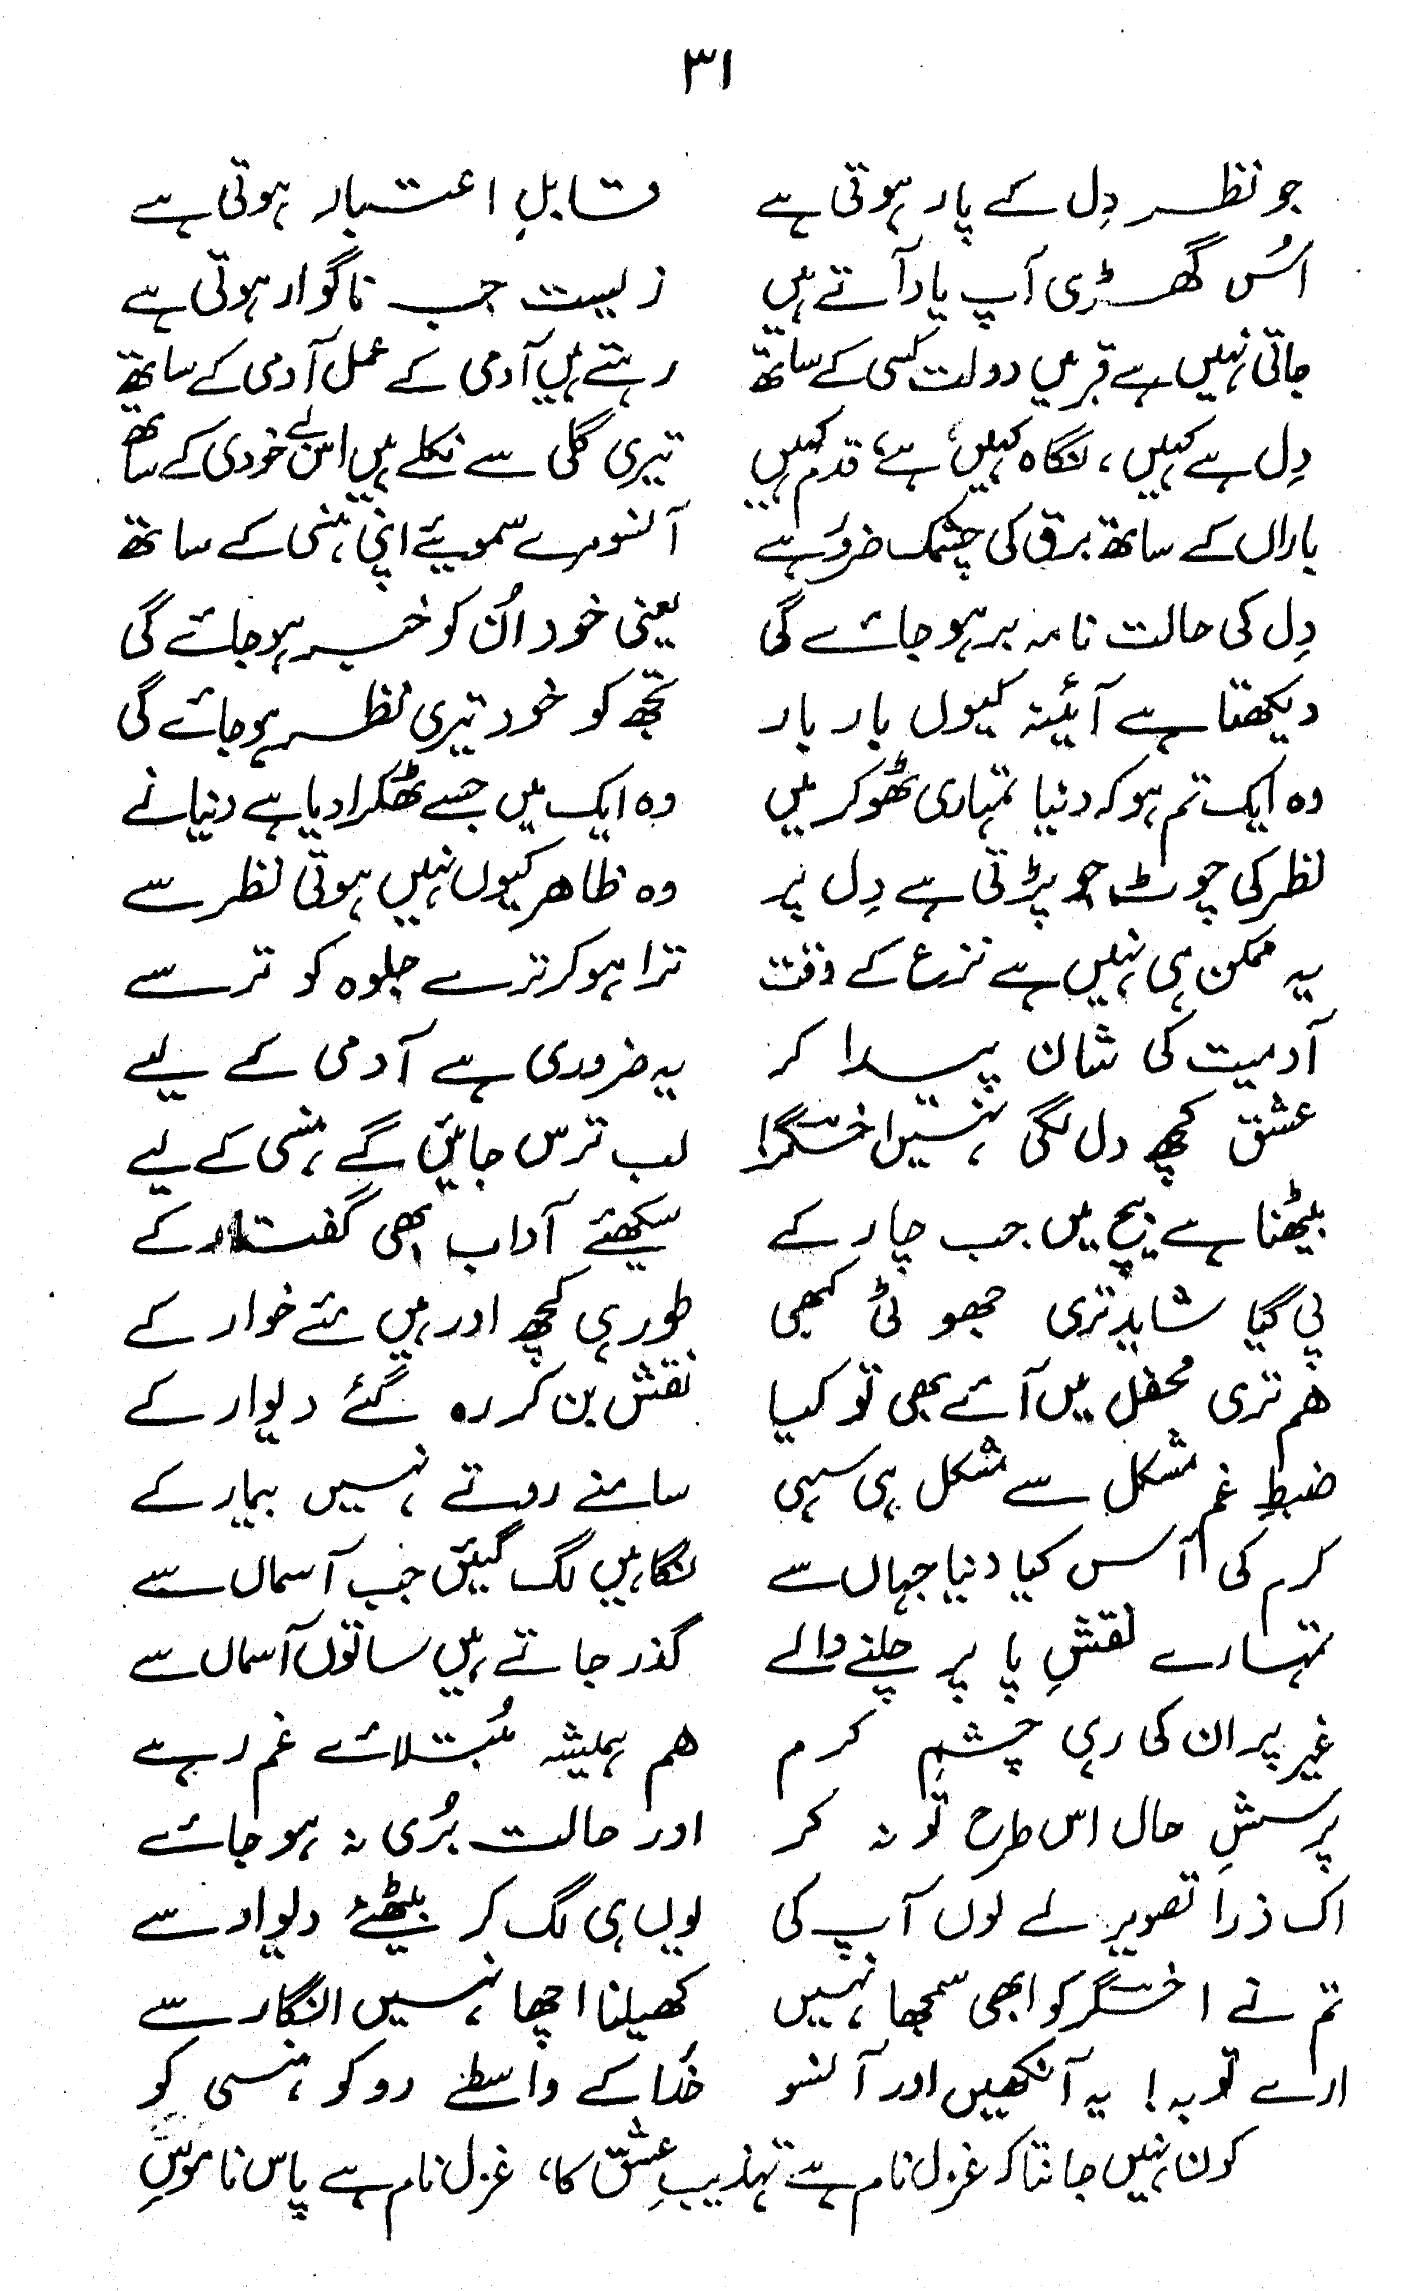 ۳۱
جو نظر دِل کے پار ہوتی ہے قابلِ اعتبار ہوتی ہے
اُس گھڑی آپ یاد آتے ہیں زیست جب ناگوار ہوتی ہے
جاتی نہیں ہے قبر میں دولت کسی کے ساتھ رہتے ہیں آدمی کے عمل آدمی کے ساتھ
دِل ہے کہیں، نگاہ کہیں ہے، قدم کہیں تیری گلی سے نکلے ہیں اس بے خودی کے ساتھ
باراں کے ساتھ برق کی چشمک ضرور ہے آنسو مرے سموئیے اپنی ہنسی کے ساتھ
دِل کی حالت نامہ بر ہو جائے گی یعنی خود اُن کو خبر ہو جائے گی
دیکھتا ہے آئینہ کیوں بار بار تجھ کو خود تیری نظر ہو جائے گی
وہ ایک تم ہو کہ دنیا تمہاری ٹھوکر میں وہ ایک میں جسے ٹھکرا دیا ہے دنیا نے
نظر کی چوٹ جو پڑتی ہے دِل پر وہ ظاہر کیوں نہیں ہوتی نظر سے
یہ ممکن ہی نہیں ہے نزع کے وقت ترا ہو کر ترے جلوہ کو ترسے
آدمیت کی شان پیدا کر یہ ضروری ہے آدمی کے لیے
عشق کچھ دل لگی نہیں اخگر! لب ترس جائیں گے ہنسی کے لیے
بیٹھنا ہے بیچ میں جب چار کے سیکھئے آداب بھی گفتار کے
پی گیا شاید تری جھوٹی کبھی طور ہی کچھ اور ہیں مئے خوار کے
ہم تری محفل میں آئے بھی تو کیا نقش بن کر رہ گئے دیوار کے
ضبطِ غم مشکل سے مشکل ہی سہی سامنے روتے نہیں بیمار کے
کرم کی آس کیا دنیا جہاں سے نگاہیں لگ گئیں جب آسماں سے
تمہارے نقشِ پا پر چلنے والے گذر جاتے ہیں ساتوں آسماں سے
غیر پر ان کی رہی چشمِ کرم ہم ہمیشہ مُبتلائے غم رہے
پرسشِ حال اس طرح تو نہ کر اور حالت بُری نہ ہو جائے
اک ذرا تصویر لے لوں آپ کی یوں ہی لگ کر بیٹھئے دیوار سے
تم نے اخگر کو ابھی سمجھا نہیں کھیلنا اچھا نہیں انگار سے
ارے توبہ! یہ آنکھیں اور آنسو خُدا کے واسطے روکو ہنسی کو
کون نہیں جانتا کہ غزل نام ہے تہذیبِ عشق کا، غزل نام ہے پاس ناموسِ